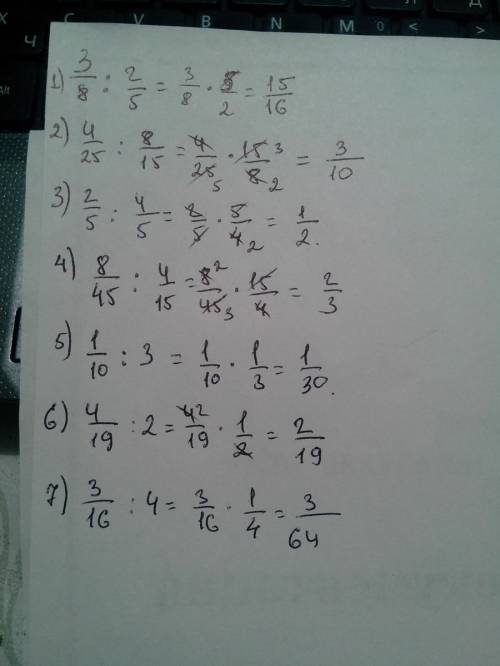 1) 3/8 : 2/5 = 3/8 · 5/2 = 15/16
2) 4/25 : 8/15 = 4/25 5 · 15/8 3 2 = 3/10
3) 2/5 : 4/5 = 8/5 · 5/4 2 = 1/2.
4) 8/45 : 4/15 = 8/45 2 3 · 15/4 = 2/3
5) 1/10 : 3 = 1/10 · 1/3 = 1/30.
6) 4/19 : 2 = 4/19 2 · 1/2 = 2/19
7) 3/16 : 4 = 3/16 · 1/4 = 3/64